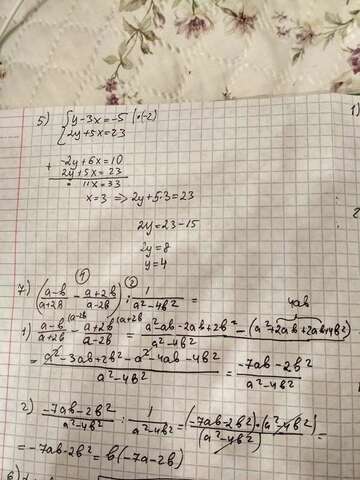 5) {y-3x=-5 |·(-2)
{2y+5x=23
+ -2y+6x=10
2y+5x=23
11x=33
x=3 ⇒ 2y+5·3=23
2y=23-15
2y=8
y=4
7) ((a-b)/(a+2b) - (a+2b)/(a-2b)) : 1/(a²-4b²) =
1) (a-b)/(a+2b) - (a+2b)/(a-2b) = (a²-ab-2ab+2b² - (a²+2ab+2ab+4b²))/(a²-4b²)
4ab
= (a²-3ab+2b²-a²-4ab-4b²)/(a²-4b²) = (-7ab-2b²)/(a²-4b²)
2) (-7ab-2b²)/(a²-4b²) : 1/(a²-4b²) = ((-7ab-2b²)·(a²-4b²))/(a²-4b²) =
= -7ab-2b² = b(-7a-2b)
1)